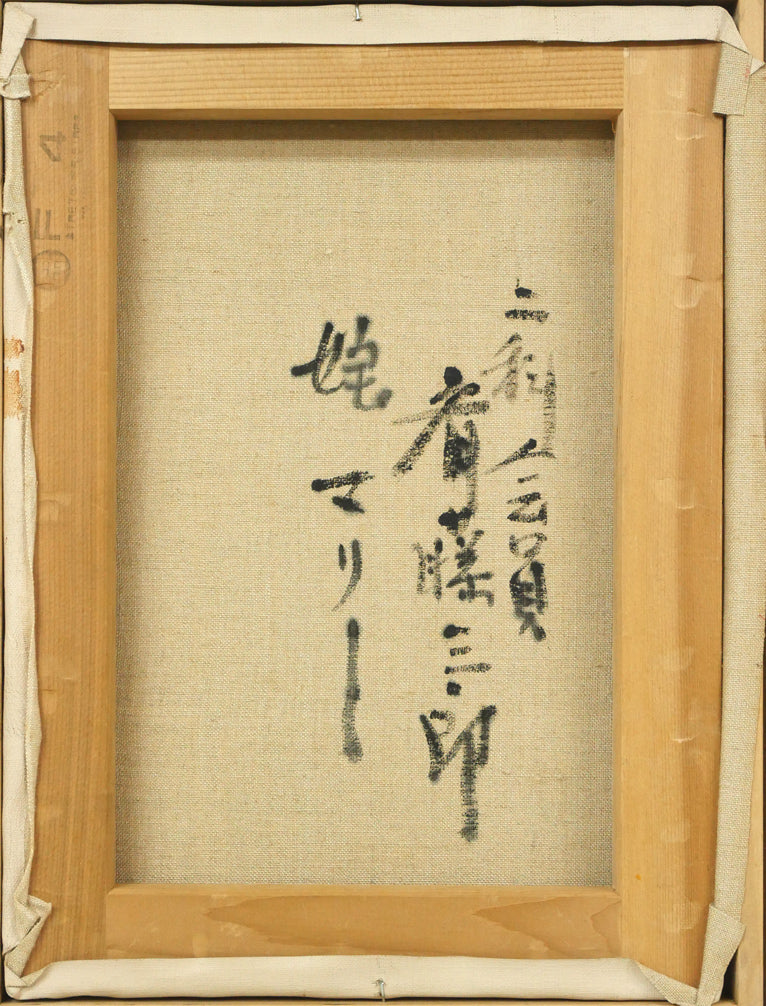 二科会員
斉藤三郎
マリー
F 4